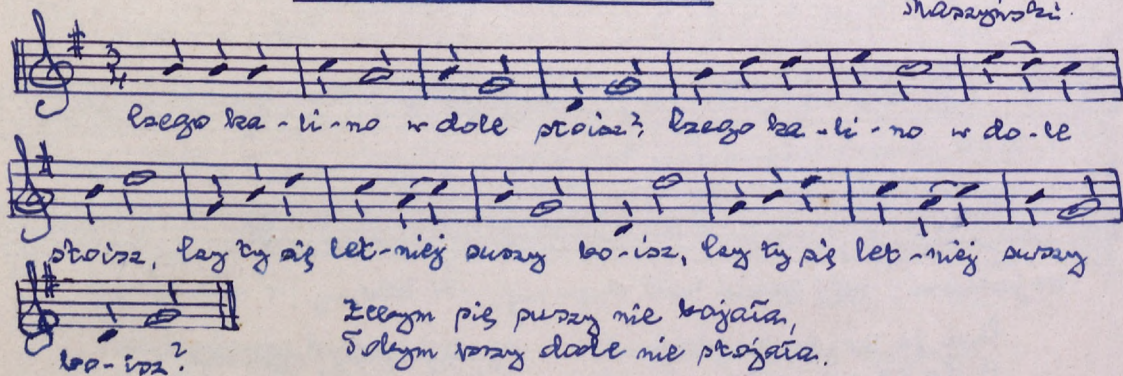 Maszyński.
3/4
Czego ka-li-no w dole stoisz? Czego ka-li-no w do-le
stoisz, Czy ty się let-niej suszy bo-isz, Czy ty się let-niej suszy
bo-isz?
Żebym się suszy nie bojała,
Tobym przy dole nie stojała.